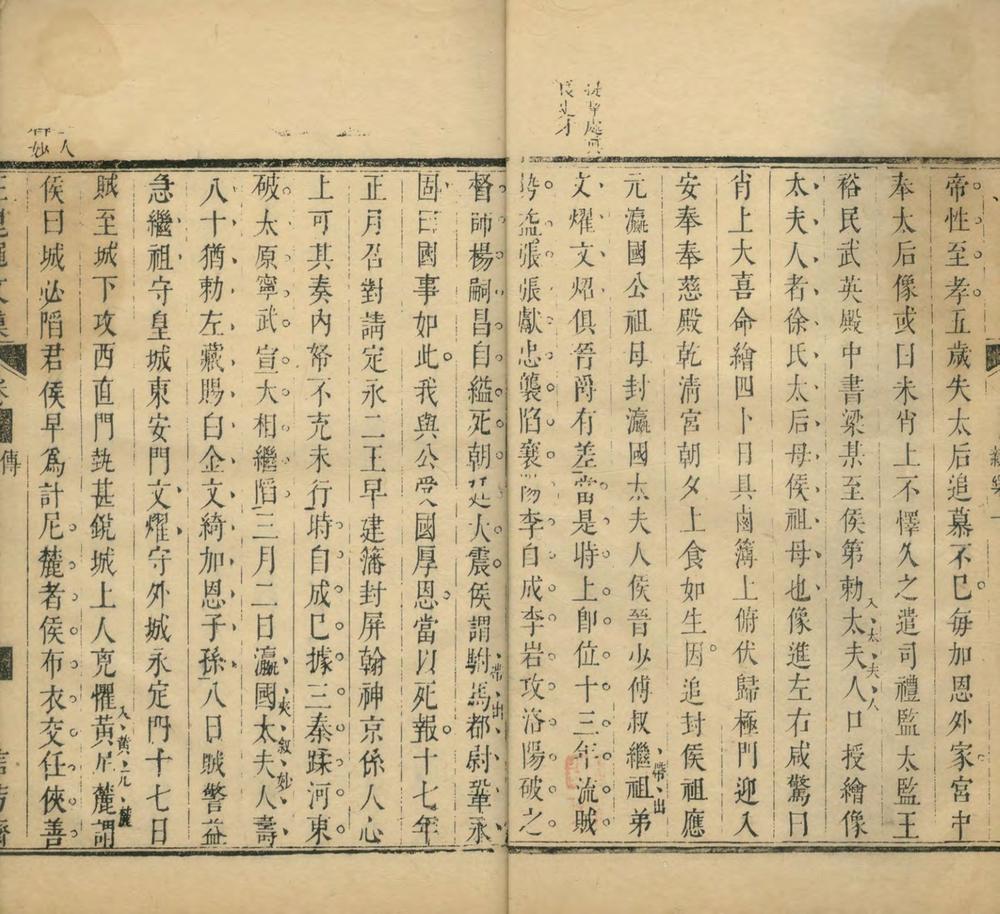 帝性至孝五歲失太后追慕不巳每加恩外家宮中
奉太后像或曰未肖上不懌久之遣司禮監太監王
裕民武英殿中書梁某至侯第勅太夫人口授繪像
入太夫人
太夫人者徐氏太后母侯祖母也像進左右咸驚曰
肖上大喜命繪四卜日具鹵簿上俯伏歸極門迎入
安奉奉慈殿乾清宮朝夕上食如生因追封侯祖應
元瀛國公祖母封瀛國太夫人侯晉少傅叔繼祖弟
帶出
文燿文炤俱晉爵有差當是時上卽位十三年流賊
勢益張張獻忠襲陷襄陽李自成李岩攻洛陽破之
督師楊嗣昌自縊死朝廷大震侯謂駙馬都尉鞏永
帶出
固曰國事如此我與公受國厚恩當以死報十七年
正月召對請定永二王早建藩封屏翰神京係人心
上可其奏內帑不充未行時自成巳據三秦蹂河東
破太原寧武宣大相繼陷三月二日瀛國太夫人壽
夾敘妙
八十猶勅左藏賜白金文綺加恩子孫八日賊警益
急繼祖守皇城東安門文燿守外城永定門十七日
賊至城下攻西直門勢甚銳城上人克懼黃尼麓謂
入黃尼麓
侯曰城必陷君侯早爲計尼麓者侯布衣交任俠善
傳